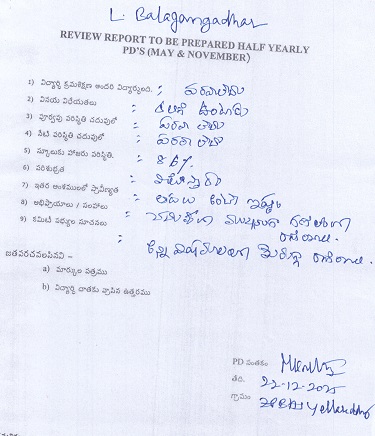 L. Balagangadhar
REVIEW REPORT TO BE PREPARED HALF YEARLY
PD'S (MAY & NOVEMBER)
1) విద్యార్థి క్రమశిక్షణ అందరి విద్యార్థులది. : పరవాలేదు
2) వినయ విధేయతలు : కలిగి ఉంటాడు
3) పూర్వపు పరిస్థితి చదువులో : పరవా లేదు
4) నేటి పరిస్థితి చదువులో : పరవా లేదు
5) స్కూలుకు హాజరు పరిస్థితి. : 86%
6) పరిశుభ్రత :
7) ఇతర అంశములలో ప్రావీణ్యత : ఆటలు అంటే ఇష్టం
8) అభిప్రాయాలు / సలహాలు :
9) కమిటీ సభ్యుల సూచనలు : రాణించాలి.
: అన్ని విషయాలలో
జతపరచవలసినవి :-
a) మార్కుల పత్రము
b) విద్యార్థి దాతకు వ్రాసిన ఉత్తరము
PD సంతకం
తేది. 22-12-2025
గ్రామం